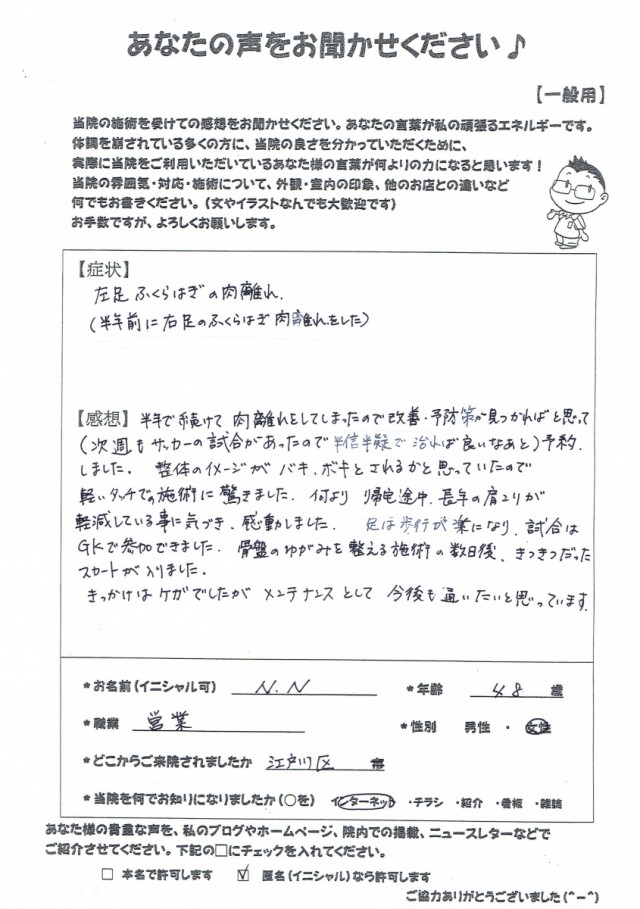 あなたの声をお聞かせください♪
【一般用】
当院の施術を受けての感想をお聞かせください。あなたの言葉が私の頑張るエネルギーです。
体調を崩されている多くの方に、当院の良さを分かっていただくために、
実際に当院をご利用いただいているあなた様の言葉が何よりの力になると思います！
当院の雰囲気・対応・施術について、外観・室内の印象、他のお店との違いなど
何でもお書きください。（文やイラストなんでも大歓迎です）
お手数ですが、よろしくお願いします。
【症状】
左足ふくらはぎの肉離れ.
(半年前に右足のふくらはぎ肉離れをした)
【感想】半年で続けて肉離れをしてしまったので改善・予防策が見つかればと思って
(次週もサッカーの試合があったので半信半疑で治れば良いなぁと)予約.
しました. 整体のイメージがバキ.ボキとされるかと思っていたので
軽いタッチでの施術に驚きました. 何より帰宅途中.長年の肩こりが
軽減している事に気づき、感動しました. 足は歩行が楽になり、試合は
GKで参加できました. 骨盤のゆがみを整える施術の数日後、きつきつだった
スカートが入りました.
きっかけはケガでしたがメンテナンスとして今後も通いたいと思っています.
*お名前（イニシャル可） N.N *年齢 48 歳
*職業 営業 *性別 男性 ・ 女性
*どこからご来院されましたか 江戸川区
*当院を何でお知りになりましたか（○を） インターネット ・チラシ ・紹介 ・看板 ・雑誌
あなた様の貴重な声を、私のブログやホームページ、院内での掲載、ニュースレターなどで
ご紹介させてください。下記の□にチェックを入れてください。
□ 本名で許可します ☑ 匿名（イニシャル）なら許可します
ご協力ありがとうございました（^－^）